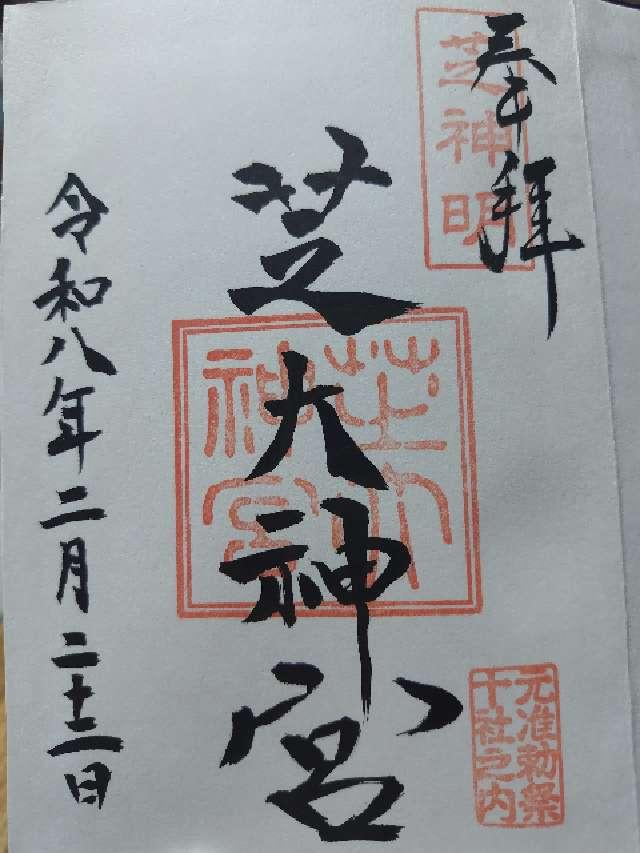 奉拝
芝神明
芝大神宮
芝大神宮
元准勅祭
十社之内
令和八年二月二十二日